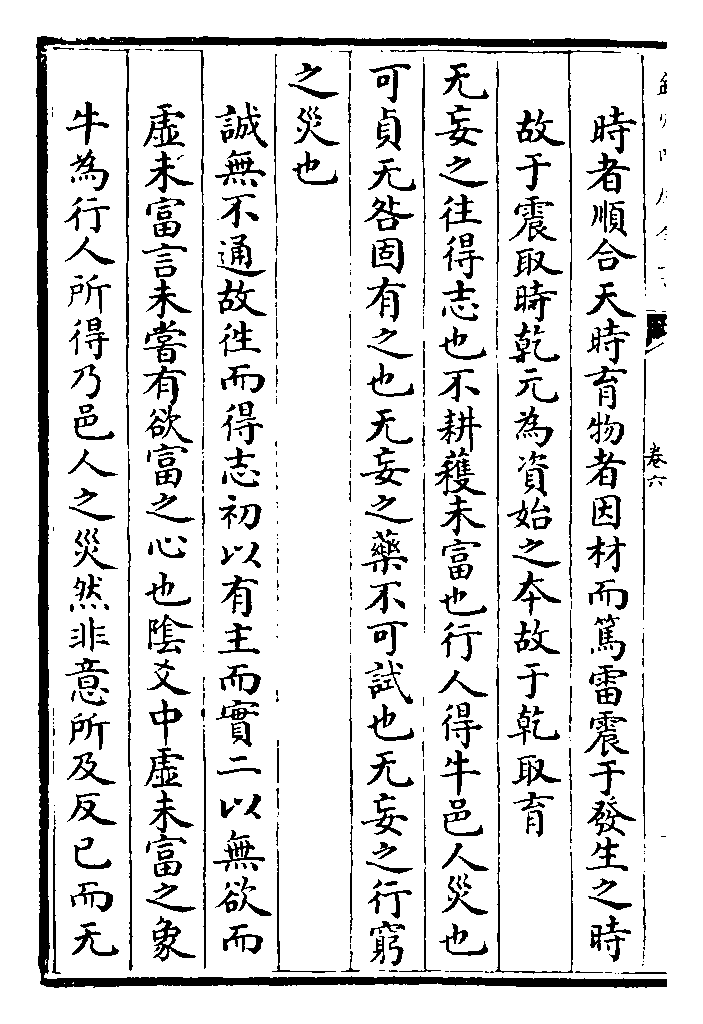 時者順合天時育物者因材而篤雷震于發生之時
故于震取時乾元為資始之本故于乾取育
无妄之往得志也不耕穫未富也行人得牛邑人災也
可貞无咎固有之也无妄之藥不可試也无妄之行窮
之災也
誠無不通故徃而得志初以有主而實二以無欲而
虛未富言未嘗有欲富之心也陰爻中虛未富之象
牛為行人所得乃邑人之災然非意所及反已而无
卷六